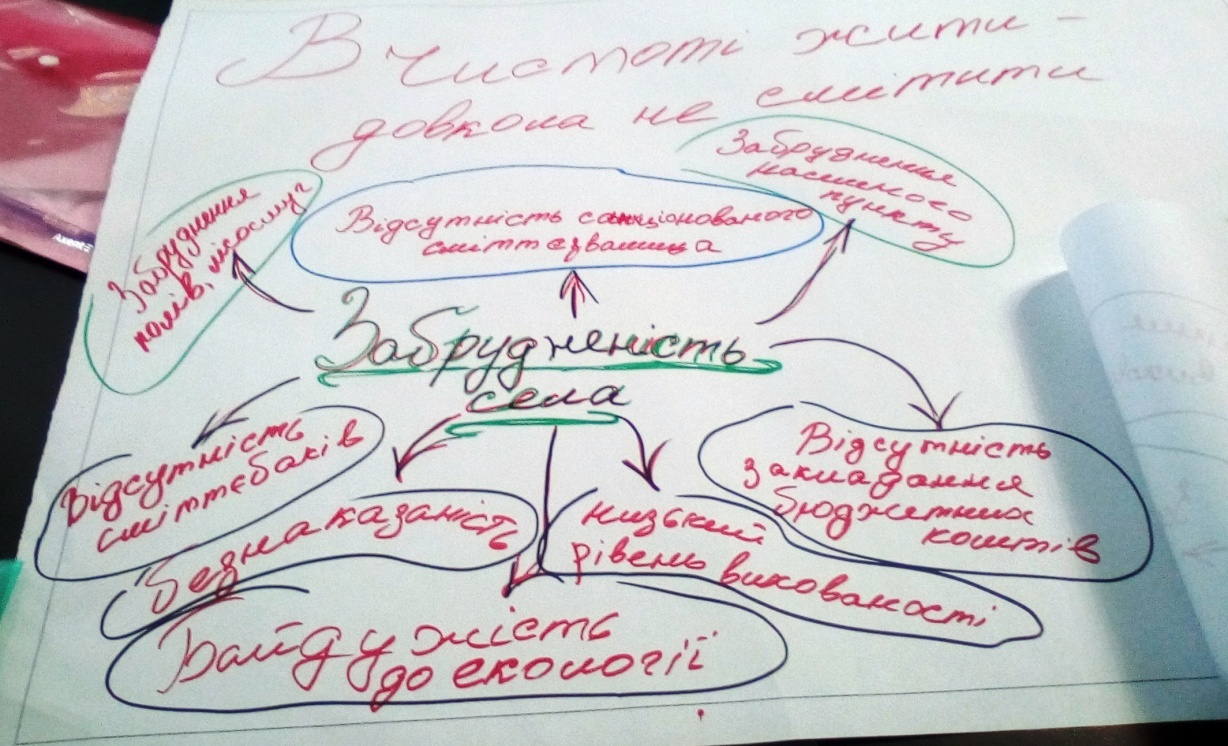 В чистоті жити -
довкола не смітити
Забруднення
населеного
пункту
Відсутність санкціонованого
сміттєзвалища
Забруднення
полів, лісосмуг
Забрудненість
села
Відсутність
сміттєбаків
Безнаказаність
низький
рівень вихованості
Відсутність
закладання
бюджетних
коштів
Байдужість
до екології